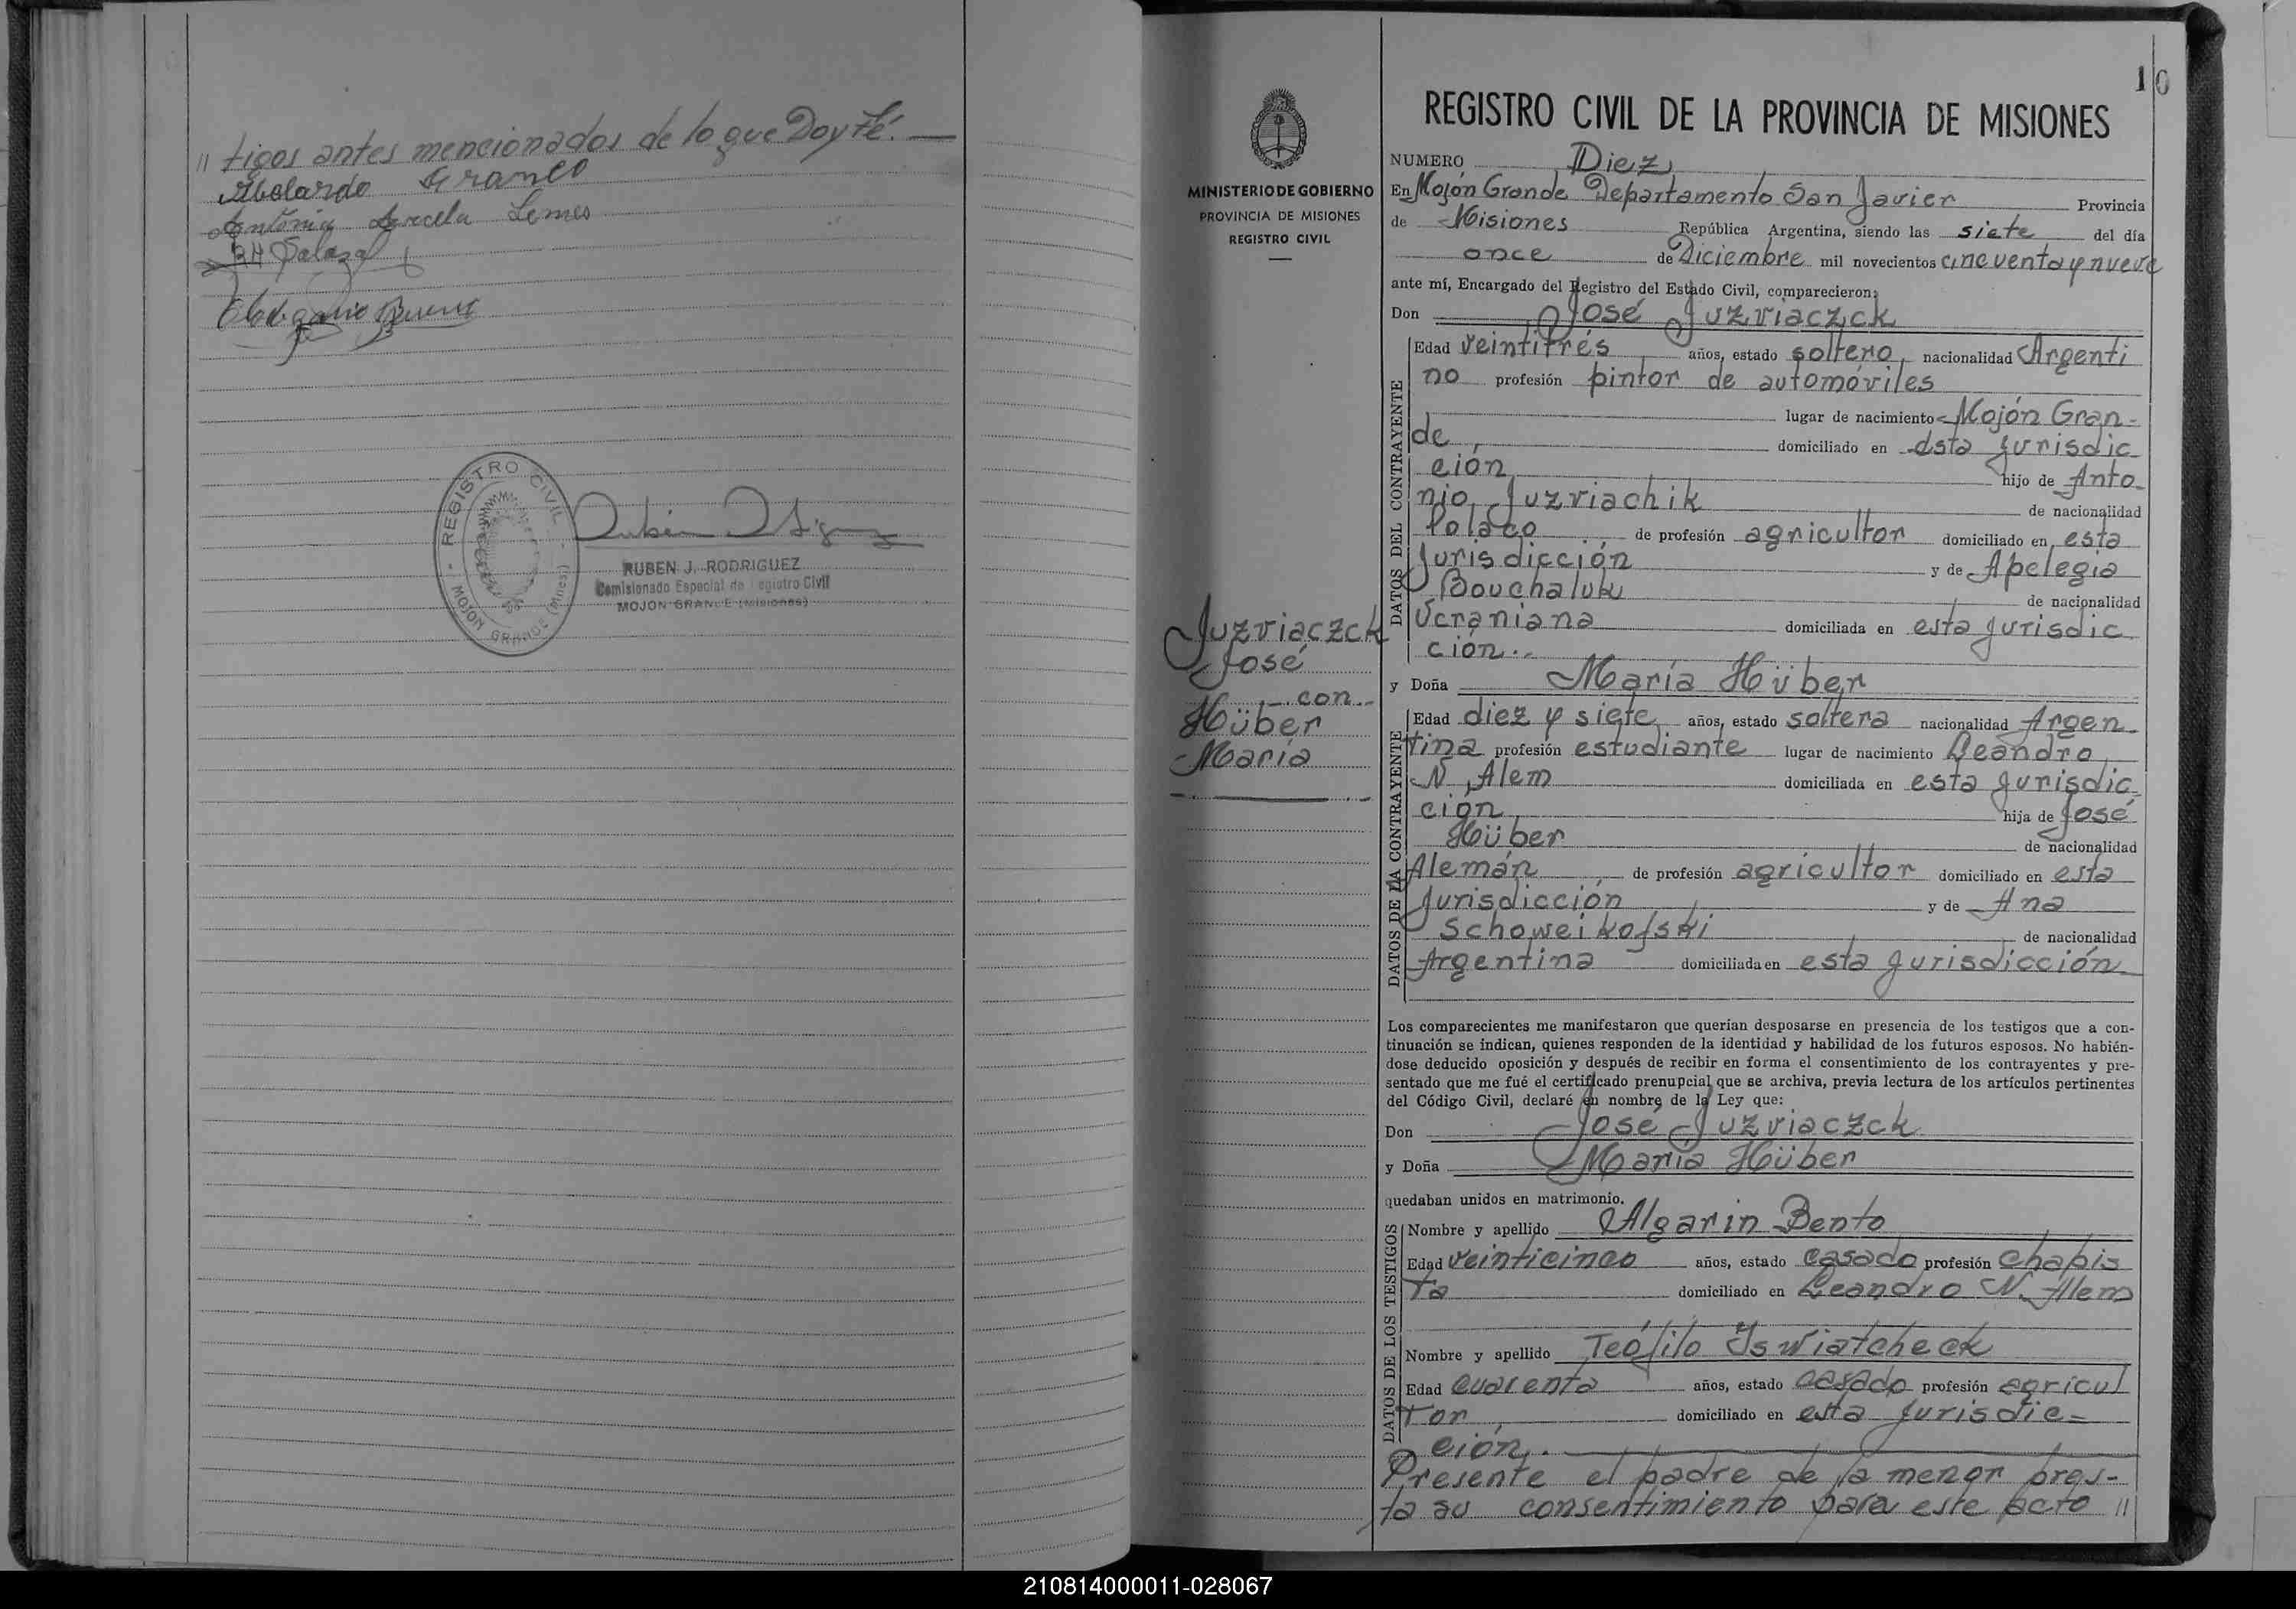 // tigos antes mencionados de lo que Doy Fé.
Abelardo Franco
Antonia Lemes
Rubén J.
REGISTRO CIVIL
- MOJON GRANDE (Mnes.) -
RUBEN J. RODRIGUEZ
Comisionado Especial de Registro Civil
MOJON GRANDE (Misiones)
10
MINISTERIO DE GOBIERNO
PROVINCIA DE MISIONES
REGISTRO CIVIL
Juzviaczck
José
con
Hüber
María
REGISTRO CIVIL DE LA PROVINCIA DE MISIONES
NUMERO Diez
En Mojón Grande Departamento San Javier Provincia
de Misiones República Argentina, siendo las siete del día
once de Diciembre mil novecientos cincuenta y nueve
ante mí, Encargado del Registro del Estado Civil, comparecieron:
Don José Juzviaczck
DATOS DEL CONTRAYENTE
Edad veintitrés años, estado soltero, nacionalidad Argenti
no profesión pintor de automóviles
lugar de nacimiento Mojón Gran-
de, domiciliado en esta jurisdic
ción hijo de Anto-
nio Juzviachik de nacionalidad
Polaco de profesión agricultor domiciliado en esta
Jurisdicción y de Apelegia
Bouchaluk de nacionalidad
Ucraniana domiciliada en esta jurisdic
ción.-
y Doña María Hüber
DATOS DE LA CONTRAYENTE
Edad diez y siete años, estado soltera nacionalidad Argen-
tina profesión estudiante lugar de nacimiento Leandro
N. Alem domiciliada en esta jurisdic
ción hija de José
Hüber de nacionalidad
Alemán de profesión agricultor domiciliado en esta
Jurisdicción y de Ana
Schoweikofski de nacionalidad
Argentina domiciliada en esta jurisdicción
Los comparecientes me manifestaron que querían desposarse en presencia de los testigos que a con-
tinuación se indican, quienes responden de la identidad y habilidad de los futuros esposos. No habién-
dose deducido oposición y después de recibir en forma el consentimiento de los contrayentes y pre-
sentado que me fué el certificado prenupcial que se archiva, previa lectura de los artículos pertinentes
del Código Civil, declaré en nombre de la Ley que:
Don José Juzviaczck
y Doña María Hüber
quedaban unidos en matrimonio.
DATOS DE LOS TESTIGOS
Nombre y apellido Algarin Bento
Edad veinticinco años, estado casado profesión chapis
ta domiciliado en Leandro N. Alem
Nombre y apellido Teófilo Iswiatcheck
Edad cuarenta años, estado casado profesión agricul
tor domiciliado en esta jurisdic-
ción.
Presente el padre de la menor pres-
ta su consentimiento para este acto //
210814000011-028067